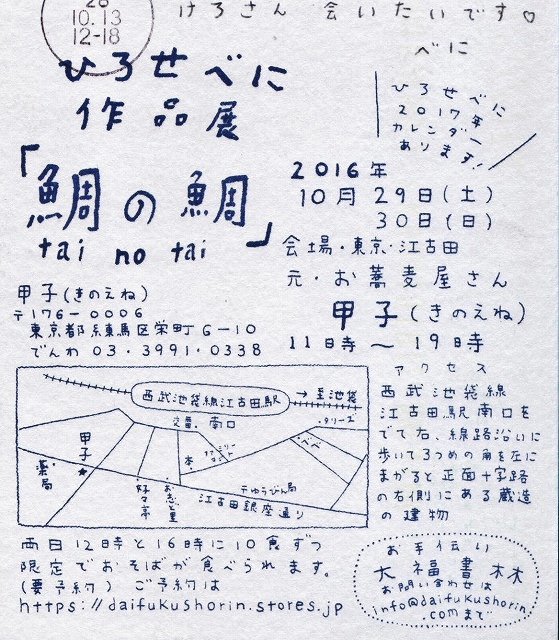 28
10.13
12-18
けろさん 会いたいです♡
べに
ひろせべに
作品展
ひろせべに
2017年
カレンダー
あります!
「鯛の鯛」
tai no tai
2016年
10月29日(土)
30日(日)
会場・東京・江古田
元・お蕎麦屋さん
甲子(きのえね)
11時〜19時
甲子(きのえね)
〒176-0006
東京都練馬区栄町6-10
でんわ 03・3991・0338
西武池袋線江古田駅
→至池袋
交番・南口
甲子
★
薬局
好々亭
お志ど里
本
〒ゆうびん局
江古田銀座通り
アクセス
西武池袋線
江古田駅南口を
でて右、線路沿いに
歩いて3つめの角を左に
まがると正面十字路
の右側にある蔵造
の建物
両日12時と16時に10食ずつ
限定でおそばが食べられます。
(要予約) ご予約は
https://daifukushorin.stores.jp
お手伝い
大福書林
お問い合わせは
info@daifukushorin
.comまで